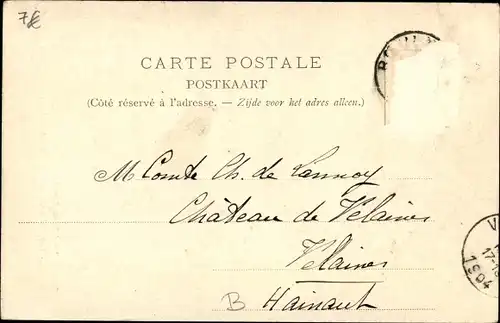 7€
CARTE POSTALE
POSTKAART
(Côté réservé à l'adresse. — Zijde voor het adres alleen.)
M Comte Ch. de Lannoy
Château de Velaines
Velaines
Hainaut
B
1904